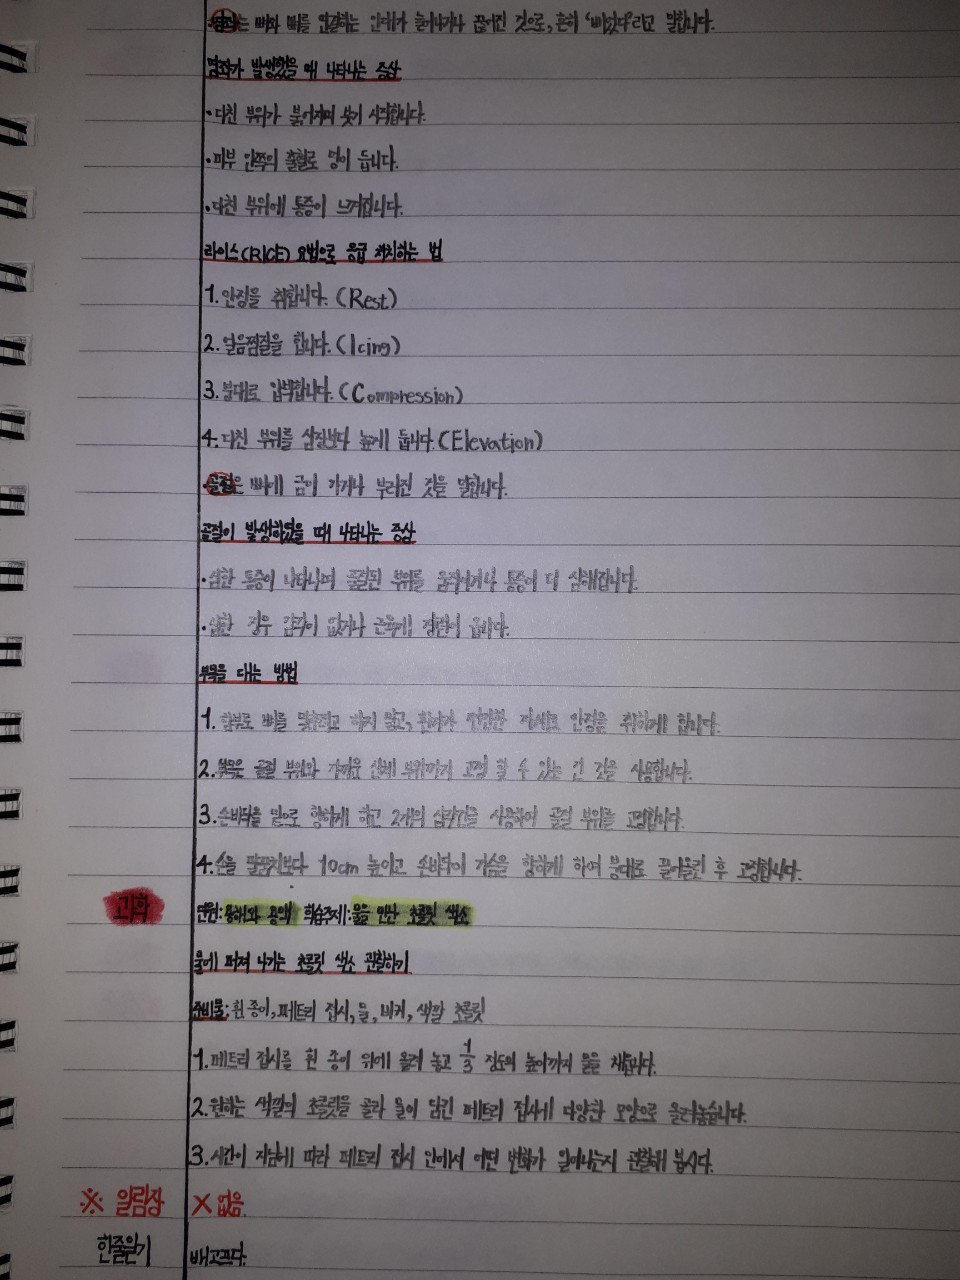 ·염좌는 뼈와 뼈를 연결하는 인대가 늘어나거나 끊어진 것으로, 흔히 '삐었다'라고 말합니다.
염좌가 발생했을 때 나타나는 증상
·다친 부위가 붉어지며 붓기 시작합니다.
·피부 안쪽의 출혈로 멍이 듭니다.
·다친 부위에 통증이 느껴집니다.
라이스(RICE) 요법으로 응급 처치하는 법
1. 안정을 취합니다. (Rest)
2. 얼음찜질을 합니다. (Icing)
3. 붕대로 압박합니다. (Compression)
4. 다친 부위를 심장보다 높게 둡니다. (Elevation)
·골절은 뼈에 금이 가거나 부러진 것을 말합니다.
골절이 발생하였을 때 나타나는 증상
·심한 통증이 나타나며 골절된 부위를 움직이거나 통증이 더 심해집니다.
·심한 경우 감각이 없거나 근육에 경련이 옵니다.
부목을 대는 방법
1. 함부로 뼈를 맞추려고 하지 말고, 환자가 편안한 자세로 안정을 취하게 합니다.
2. 부목은 골절 부위와 가까운 신체 부위까지 고정 할 수 있는 긴 것을 사용합니다.
3. 손바닥을 밑으로 향하게 하고 2개의 삼각건을 사용하여 골절 부위를 고정합니다.
4. 손을 팔꿈치보다 10cm 높이고 손바닥이 가슴을 향하게 하여 붕대로 끌어올린 후 고정합니다.
과학 단원: 용해와 용액 학습주제: 물을 만난 초콜릿 색소
물에 퍼져 나가는 초콜릿 색소 관찰하기
준비물: 흰 종이, 페트리 접시, 물, 비커, 색깔 초콜릿
1. 페트리 접시를 흰 종이 위에 올려 놓고 1/3 정도의 높이까지 물을 채웁니다.
2. 원하는 색깔의 초콜릿을 골라 물이 담긴 페트리 접시에 다양한 모양으로 올려놓습니다.
3. 시간이 지남에 따라 페트리 접시 안에서 어떤 변화가 일어나는지 관찰해 봅시다.
※ 알림장 X 없음.
한줄일기 배고프다.